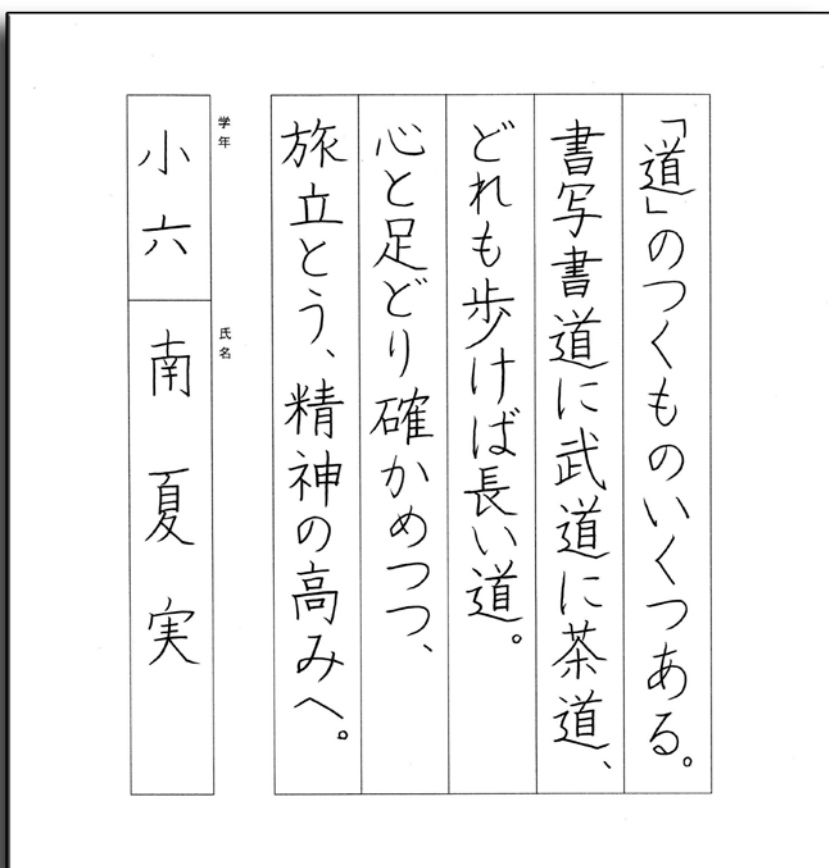 「道」のつくものいくつある。
書写書道に武道に茶道、
どれも歩けば長い道。
心と足どり確かめつつ、
旅立とう、精神の高みへ。
学年
小六
氏名
南夏実